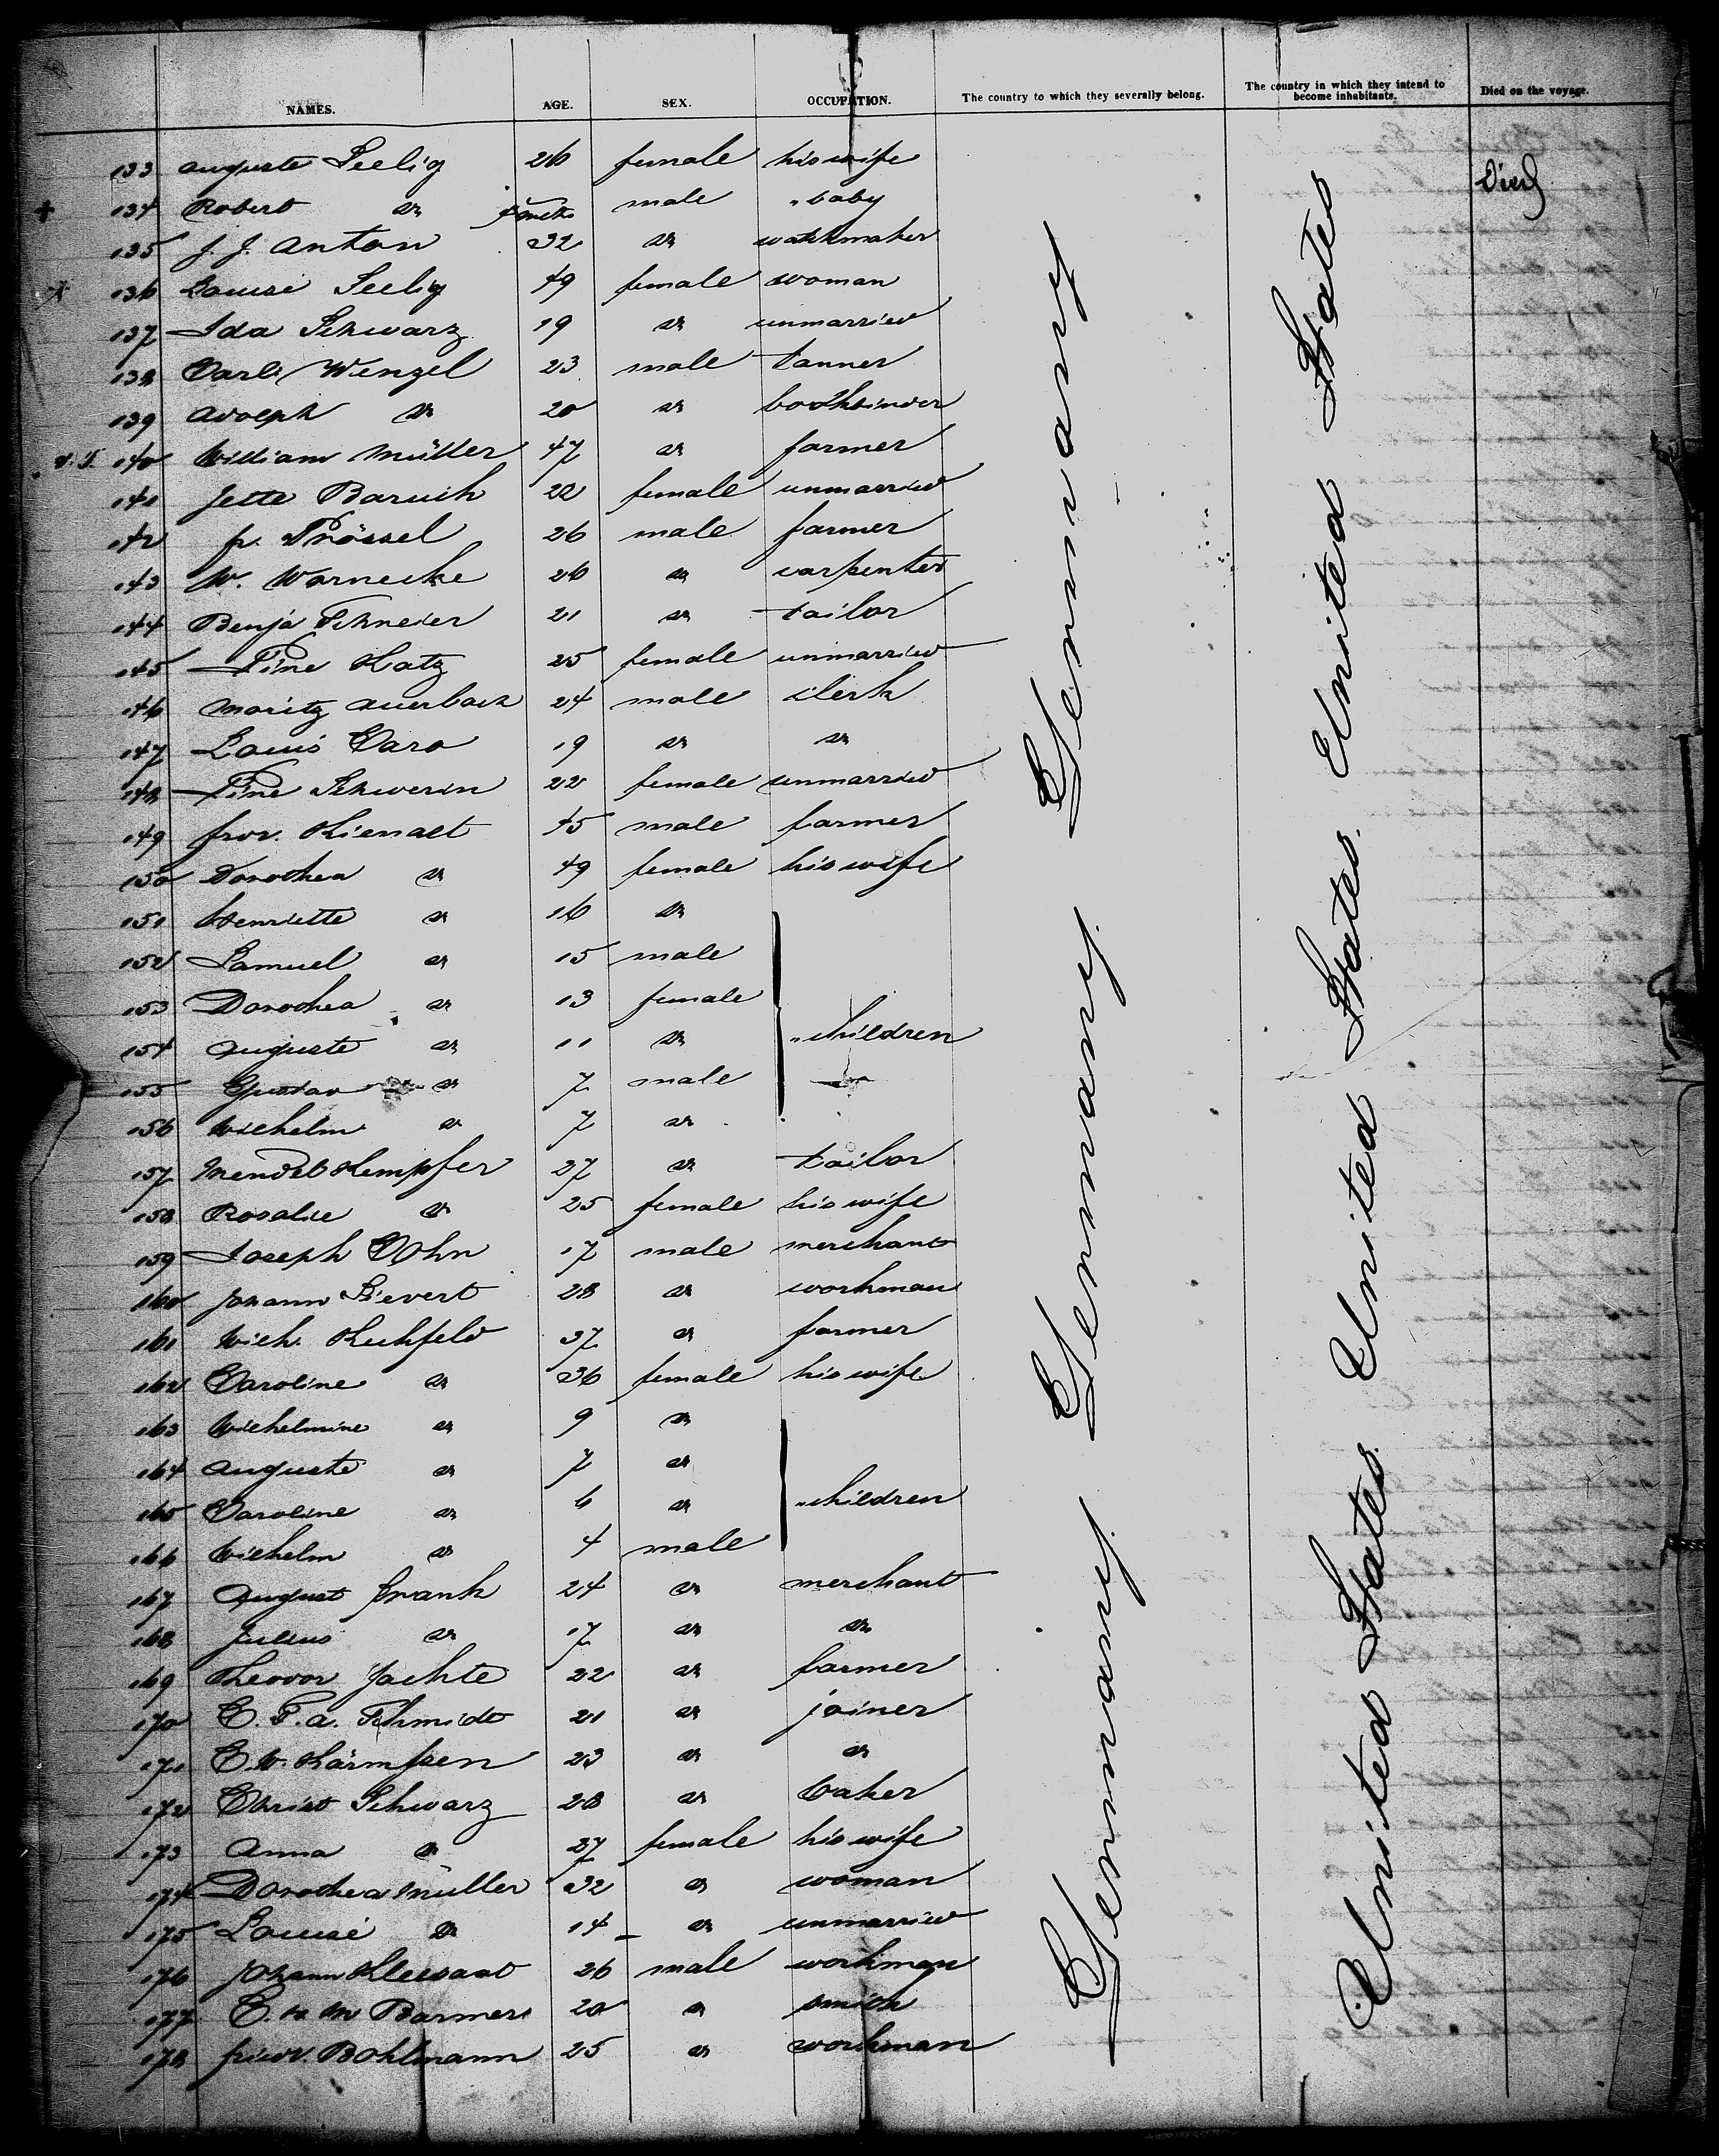 NAMES. AGE. SEX. OCCUPATION. The country to which they severally belong. The country in which they intend to become inhabitants. Died on the voyage.
133 Auguste Seelig 26 female his wife
134 Robert do male " baby Died
135 J. J. Anton 32 do watchmaker
136 Louise Seelig 49 female woman
137 Ida Schwarz 19 do unmarried
138 Carl Wenzel 23 male tanner
139 Adolph do 20 do bookbinder
140 William Müller 47 do farmer
141 Jette Baruch 22 female unmarried
142 fr. Prössel 26 male farmer
143 W. Warnecke 26 do carpenter
144 Benja Schneier 21 do tailor
145 Pine Katz 25 female unmarried
146 Moritz Auerbach 24 male clerk
147 Louis Caro 19 do do
148 Pine Schwerin 22 female unmarried
149 Kienast 45 male farmer
150 Dorothea do 49 female his wife
151 Henriette do 16 do
152 Samuel do 15 male
153 Dorothea do 13 female
154 Auguste do 11 do " children
155 Gustav do 7 male
156 Wilhelm do 7 do
157 Mendel Kempfer 27 do tailor
158 Rosalie do 25 female his wife
159 Joseph Cohn 17 male merchant
160 Johann Sievert 28 do workman
161 Wilh. Kuhfeld 37 do farmer
162 Caroline do 36 female his wife
163 Wilhelmine do 9 do
164 Auguste do 7 do
165 Caroline do 6 do " children
166 Wilhelm do 4 male
167 August Frank 24 do merchant
168 Julius do 17 do do
169 Theodor Jachte 22 do farmer
170 C. F. A. Schmidt 21 do joiner
171 C. W. 23 do do
172 Christ Schwarz 28 do baker
173 Anna do 27 female his wife
174 Dorothea Müller 32 do woman
175 Louise do 14 do unmarried
176 Johann Kleesaat 26 male workman
177 C. H. M Barmers 20 do smith
178 friedr. Bohlmann 25 do workman
Germany
Germany.
Germany.
United States
United States.
United States.